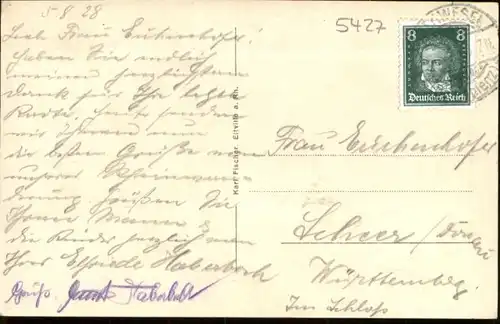 5/8 28
Liebe Frau Euchenhofer!
haben Sie endlich
meinen herzlichsten
Dank für Ihre letzte
Karte, heute senden
wir Ihnen nun
die besten Grüße von
unserer Rheinwan-
derung. Grüßen Sie
Ihren Mann &
die Kinder herzlich von
Ihrer Elfriede Haberboch
Gruß
5427
8 8
Deutsches Reich
WESEL
Karl Fischer, Eltville a. Rh.
Frau Euchenhofer
Scheer / Donau
Württemberg.
Im Schloß